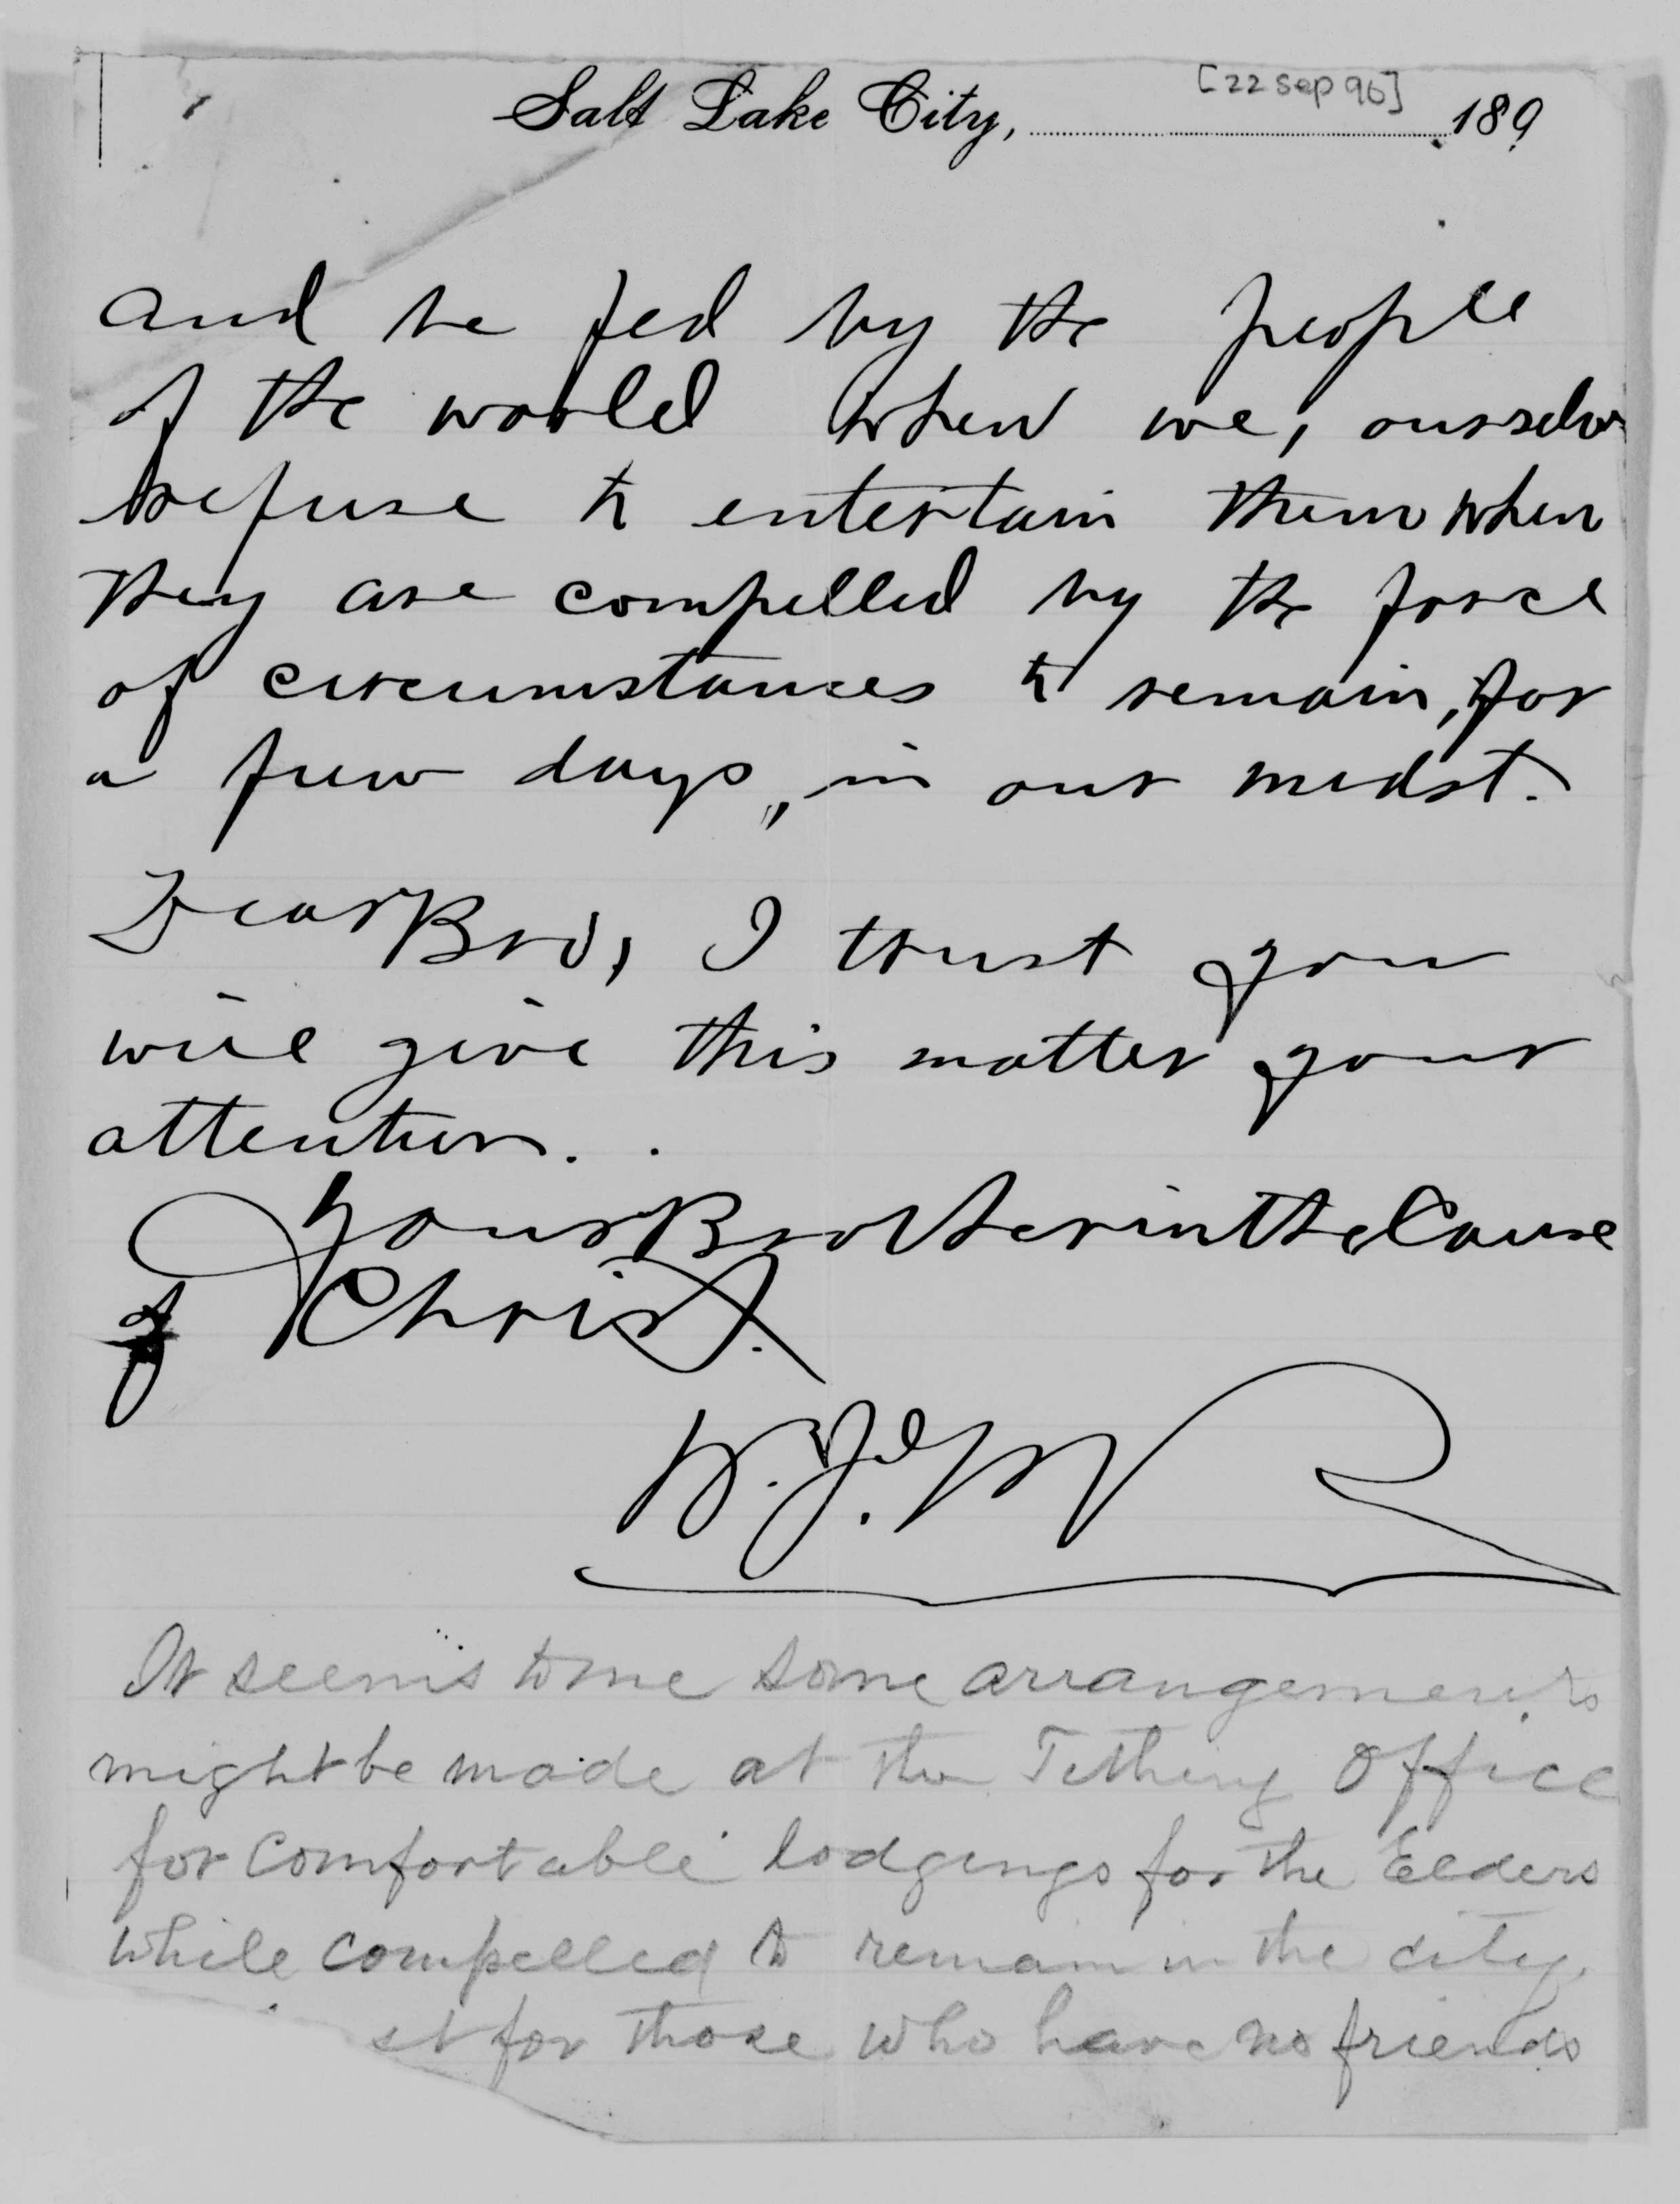 [22 sep 96]
Salt Lake City, 189
and be fed by the people
of the world when we, ourselves
refuse to entertain them when
they are compelled by the force
of circumstances to remain, for
a few days, in our midst.
Dear Bro, I trust you
will give this matter your
attention.
Your Brother in the Cause
of Christ.
W. J.
It seems to me some arrangements
might be made at the Tithing Office
for comfortable lodgings for the Elders
while compelled to remain in the city.
st for those who have no friends